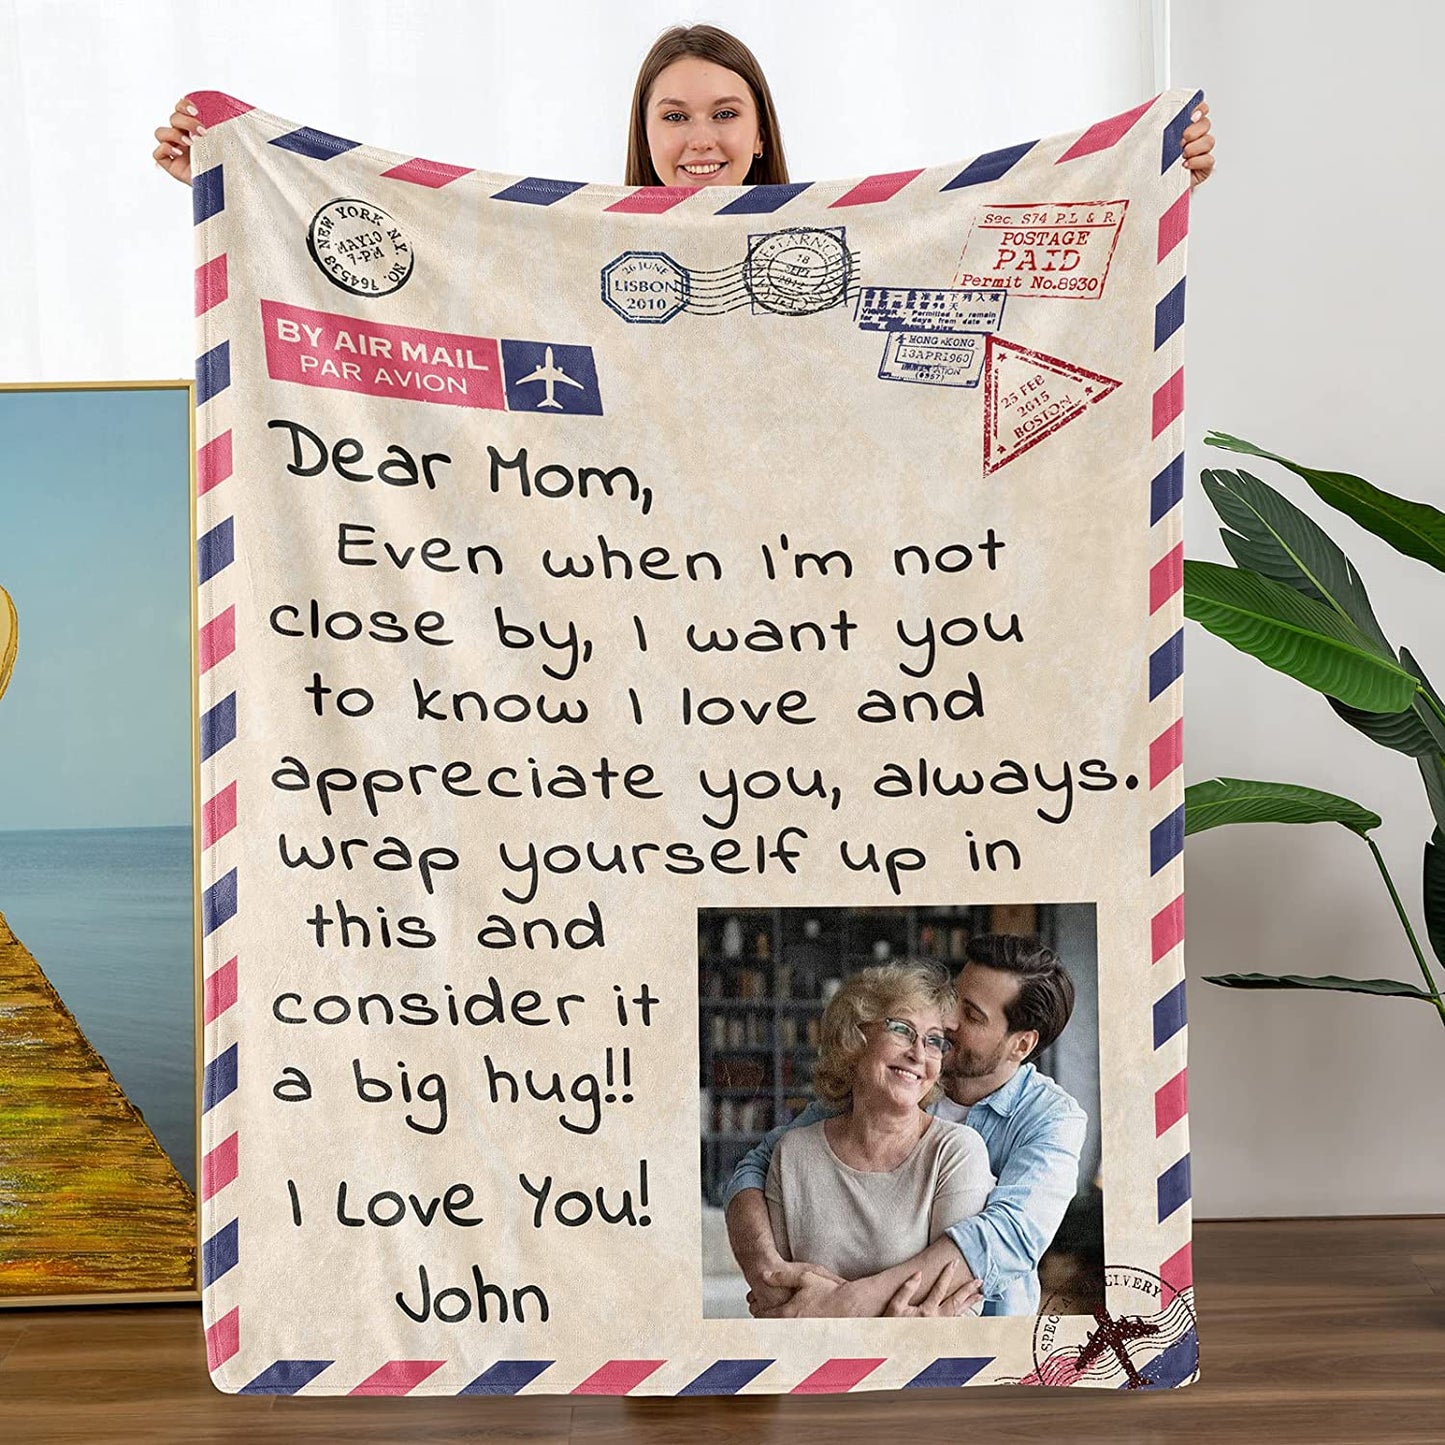 NEW YORK N.Y.
MAY10
7-PM
NO. 764538
26 JUNE
LISBON
2010
18
SEPT
2012
Sec. S74 P.L & R.
POSTAGE
PAID
Permit No.8930
Permitted to remain
days from date of
HONG KONG
13APR1960
(0967)
25 FEB
2015
BOSTON
BY AIR MAIL
PAR AVION
Dear Mom,
Even when I'm not
close by, I want you
to know I love and
appreciate you, always.
wrap yourself up in
this and
consider it
a big hug!!
I Love You!
John